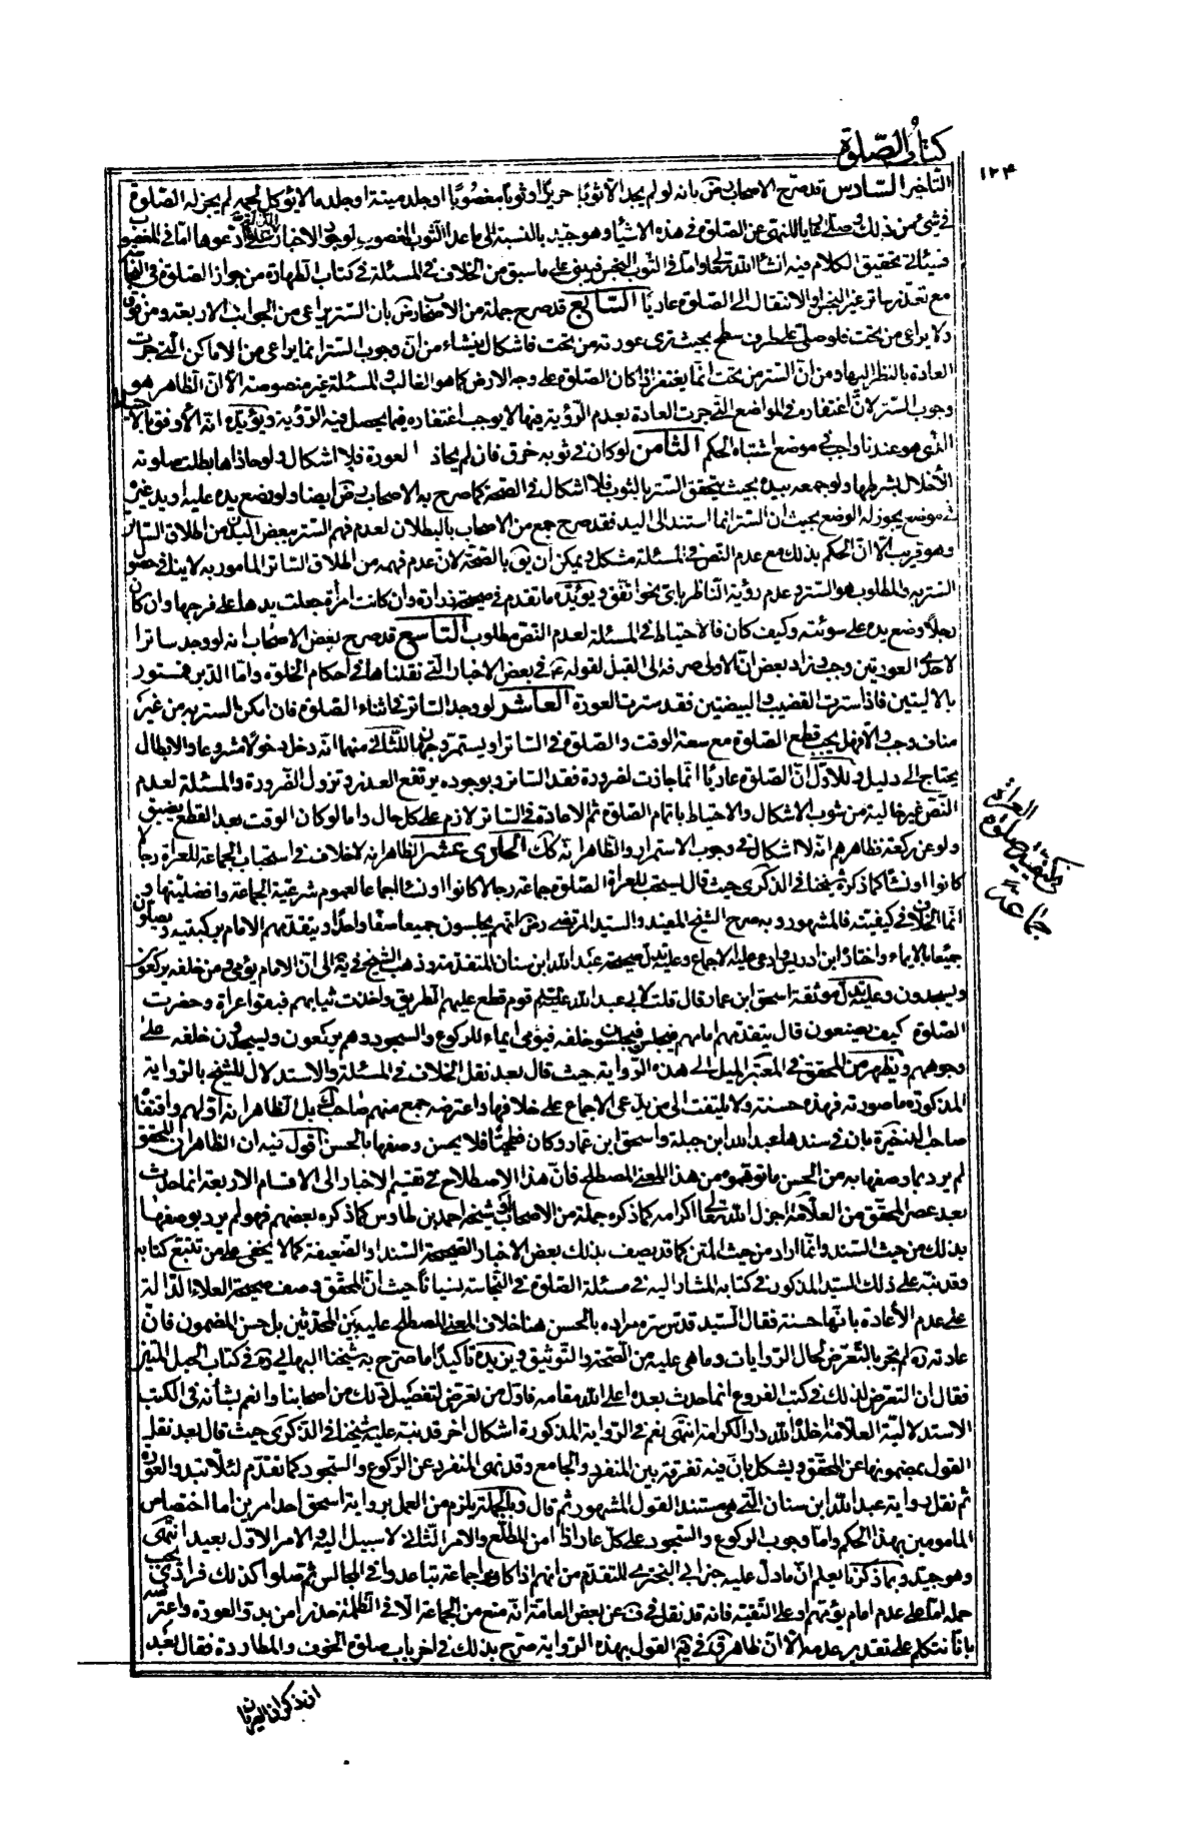 كتاب الصّلوة
١٢٤
التأخير السّادس قد صرّح الاصحاب رض بانه لو لم يجد الّا ثوبًا حريرًا او ثوبًا مغصوبًا او جلد ميتة او جلد ما لا يؤكل لحمه لم يجز له الصّلوة
في شئ من ذلك وصلى عاريا للنهى عن الصّلوة في هذه الاشياء وهو جيّد بالنسبة الى ما عدا الثوب المغصوب لوجود الاخبار الدالة على ما ادعوها اما في المغصوب
فسيأتى تحقيق الكلام فيه انشاء الله تعالى واما في الثوب النجس فيبنى على ما سبق من الخلاف في المسئلة في كتاب الطهارة من جواز الصلوة في النجاسة
مع تعذر ساتر غير النجس او الانتقال الى الصلوة عاريًا السّابع قد صرح جملة من الاصحاب رض بان الستر يراعى من الجوانب الاربعة ومن فوق
ولا يراعى من تحت فلو صلى على طرف سطح بحيث ترى عورته من تحت فاشكال ينشاء من ان وجوب الستر انما يراعى من الاماكن التى جرت
العادة بالنظر اليها ومن انّ الستر من تحت انّما يغتفر اذا كان الصلوة على وجه الارض كما هو الغالب والمسئلة غير منصوصة الّا انّ الظاهر هو
وجوب الستر لانّ اغتفاره في المواضع التى جرت العادة بعدم الرّؤية فيها لا يوجب اغتفاره فيما يحصل فيه الرّؤية ويؤيّده انه الأوفق بالاحتياط
الذى هو عندنا واجب في موضع اشتباه الحكم الثّامن لو كان في ثوبه خرق فان لم يحاذ العورة فلا اشكال ولو حاذاها بطلت صلوته
للأخلال بشرطها ولو جمعه بيده بحيث يتحقق الستر بالثوب فلا اشكال في الصّحة كما صرح به الاصحاب رض ايضا ولو وضع يده عليه او يد غيره
في موضع يجوز له الوضع بحيث ان الستر انما استند الى اليد فقد صرح جمع من الاصحاب بالبطلان لعدم فهم الستر ببعض البدن من اطلاق الساتر
وهو قريب الّا انّ الحكم بذلك مع عدم النصّ في المسئلة مشكل ويمكن أن يق بالصّحة لانّ عدم فهمه من اطلاق الساتر المأمور به لا ينافي حصول
الستر به والمطلوب هو الستر وعدم رؤية الناظر باى نحو اتفق ويؤيّده ما تقدم في صحيحة زرارة وان كانت امرأة جعلت يدها على فرجها وان كان
رجلًا وضع يده على سوئته وكيف كان فالاحتياط في المسئلة لعدم النصّ مطلوب التاسع قد صرح بعض الاصحاب انه لو وجد ساترا
لاحدى العورتين وجب وزاد بعض انّ الاولى صرفه الى القبل لقوله ع في بعض الاخبار التى نقلناها في احكام الخلوة واما الدّبر فمستور
بالاليتين فاذا سترت القضيب والبيضتين فقد سترت العورة العاشر لو وجد الساتر في اثناء الصّلوة فان امكن الستر به من غير
مناف وجب والّا فهل يجب قطع الصّلوة مع سعة الوقت والصّلوة في الساتر او يستمر وجهان للثانى منهما انّه دخل دخولًا مشروعا والابطال
يحتاج الى دليل وللاوّل انّ الصّلوة عاريًا انّما جازت لضرورة فقد الساتر وبوجوده يرتفع العذر وتزول الضّرورة والمسئلة لعدم
النّص غير خالية من شوب الاشكال والاحتياط باتمام الصلوة ثم الاعادة في الساتر لازم على كل حال واما لو كان الوقت بعد القطع يضيق
ولو عن ركعة فظاهرهم انّه لا اشكال في وجوب الاستمرار والظاهر انّه كك الحادى عشر الظاهر انه لا خلاف في استحباب الجماعة للعراة رجالا
كانوا او نساءً كما ذكره شيخنا في الذكرى حيث قال يستحب للعراة الصّلوة جماعة رجالا كانوا او نساءً اجماعا لعموم شرعيّة الجماعة وافضليّتها
انّما الخلاف في كيفيته فالمشهور وبه صرح الشيخ المفيد والسيد المرتضى رض انهم يجلسون جميعا صفا واحدًا ويتقدّمهم الامام بركبتيه ويصلون
جميعًا بالايماء واختاره ابن ادريس وادعى عليه الاجماع وعليه تدل صحيحة عبد الله ابن سنان المتقدّمة وذهب الشيخ في ية الى انّ الامام يؤمى ومن خلفه يركعون
ويسجدون وعليه تدل موثقة اسحق ابن عمار قال قلت لابي عبد الله عليه السلم قوم قطع عليهم الطريق واخذت ثيابهم فبقوا عراة وحضرت
الصلوة كيف يصنعون قال يتقدّمهم امامهم فيجلس ويجلسون خلفه فيؤمى ايماء للركوع والسجود وهم يركعون ويسجدون خلفه على
وجوههم ويظهر من المحقّق في المعتبر الميل الى هذه الرّواية حيث قال بعد نقل الخلاف في المسئلة والاستدلال للشيخ بالرّواية
المذكورة ما صورته فهذه حسنة ولا يلتفت الى من يدّعى الاجماع على خلافها واعترضه جمع منهم صاحب ك بل الظاهر انه اوّلهم واقتفاه
صاحب الذخيرة بان في سندها عبد الله ابن جبلة واسحق ابن عمار وكان فطحيًّا فلا يحسن وصفها بالحسن اقول فيه ان الظاهر ان المحقق
لم يرد بما وصفها به من الحسن ما توهّموه من هذا المعنى المصطلح فانّ هذا الاصطلاح في تقسيم الاخبار الى الاقسام الاربعة انما حدث
بعد عصر المحقق من العلامة اجزل الله تعالى اكرامه كما ذكره جملة من الاصحاب او شيخه احمد بن طاوس كما ذكره بعضهم فهو لم يرد بوصفها
بذلك من حيث السند وانّما اراد من حيث المتن كما قد يصف بذلك بعض الاخبار الصّحيحة السّند او الضّعيفة كما لا يخفى على من تتبّع كتابه
وقد نبّه على ذلك السيّد المذكور في كتابه المشار اليه في مسئلة الصّلوة في النّجاسة نسيانًا حيث انّ المحقّق وصف صحيحة العلاء الدّالة
على عدم الأعادة بانّها حسنة فقال السّيد قدس سره مراده بالحسن هنا خلاف المعنى المصطلح عليه بين المحدّثين بل حسن المضمون فانّ
عادته ره لم تجر بالتّعرّض لحال الرّوايات وما هى عليه من الصّحّة والتوثيق ويزيده تأكيدًا ما صرّح به شيخنا البهائى ره في كتاب الحبل المتين
فقال ان التعرض لذلك في كتب الفروع انما حدث بعده اعلى الله مقامه فاوّل من تعرّض لتفصيل ذلك من اصحابنا واهتم بشأنه في الكتب
الاستدلاليّة العلّامة احلّه الله دار الكرامة انتهى نعم في الرّواية المذكورة اشكال اخر قد نبّه عليه شيخنا في الذّكرى حيث قال بعد نقل
القول بمضمونها عن المحقّق ويشكل بانّ فيه تفرقة بين المنفرد والجامع وقد نهى المنفرد عن الرّكوع والسّجود كما تقدّم لئلّا تبدو العورة
ثم نقل رواية عبد الله ابن سنان التى هى مستند القول المشهور ثم قال وبالجملة يلزم من العمل برواية اسحق احد امرين اما اختصاص
المأمومين بهذا الحكم واما وجوب الرّكوع والسّجود على كلّ عار اذا امن المطّلع والامر الثّانى لا سبيل اليه والامر الاوّل بعيد انتهى
وهو جيّد وبما ذكرنا يعلم انّ ما دلّ عليه خبر ابي البختري المتقدّم من انهم اذا كانوا جماعة تباعدوا في المجالس ثم صلوا كذلك فرادى يجب
حمله اما على عدم امام يؤمّهم او على التقيّة فانه قد نقل في ف عن بعض العامّة انّه منع من الجماعة الّا في الظلمة حذرا من بدوّ العورة واعترضه
بانا نتكلم على تقدير عدمه الّا انّ ظاهر في القول بهذه الرّواية صرّح بذلك في اخر باب صلوة الخوف والمطاردة فقال بعد
ان ذكر ان العريان
العراة
في كيفية صلوة
جماعة